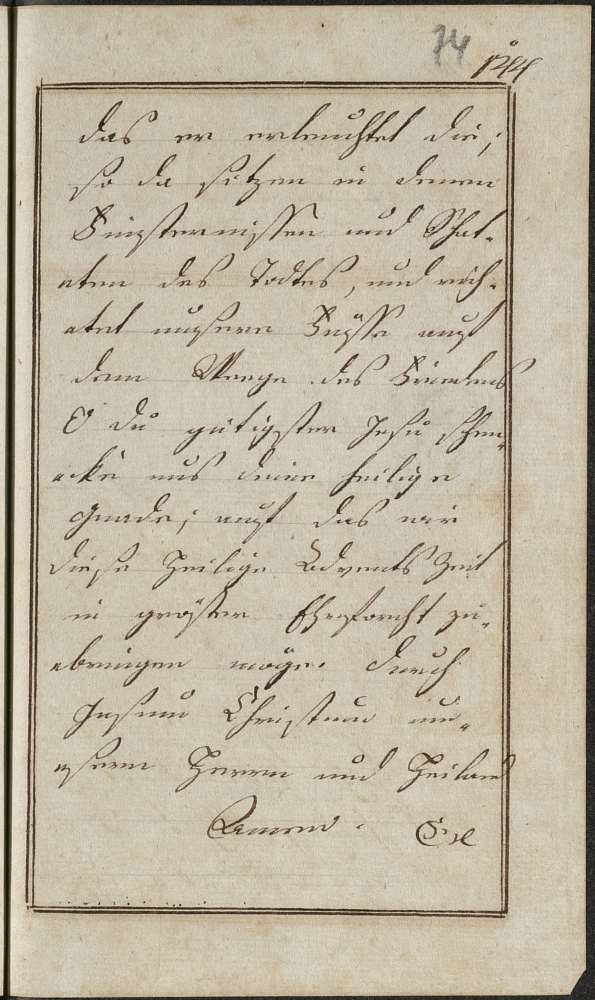 74
das er erleuchtet die,
so da sitzen in denen
Finsternissen und Schat-
ten des Todtes, und rich-
tet unsere Füsse auf
dem Weege des Friedens
O du gütigster Jesu schen-
cke uns deine heilige
Gnade, auf das wir
diese heilige Advents Zeit
in gröster Ehrforcht zu-
bringen möge. durch
Jesum Christum un-
sern Herrn und Heiland
Amen.